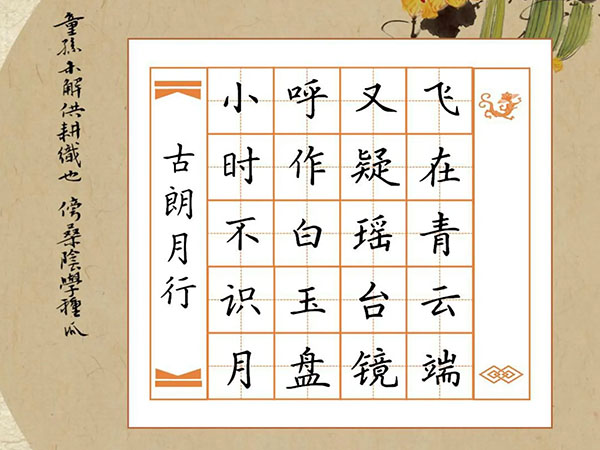 童孫未解供耕織也 傍桑陰學種瓜
古朗月行
小时不识月
呼作白玉盘
又疑瑶台镜
飞在青云端